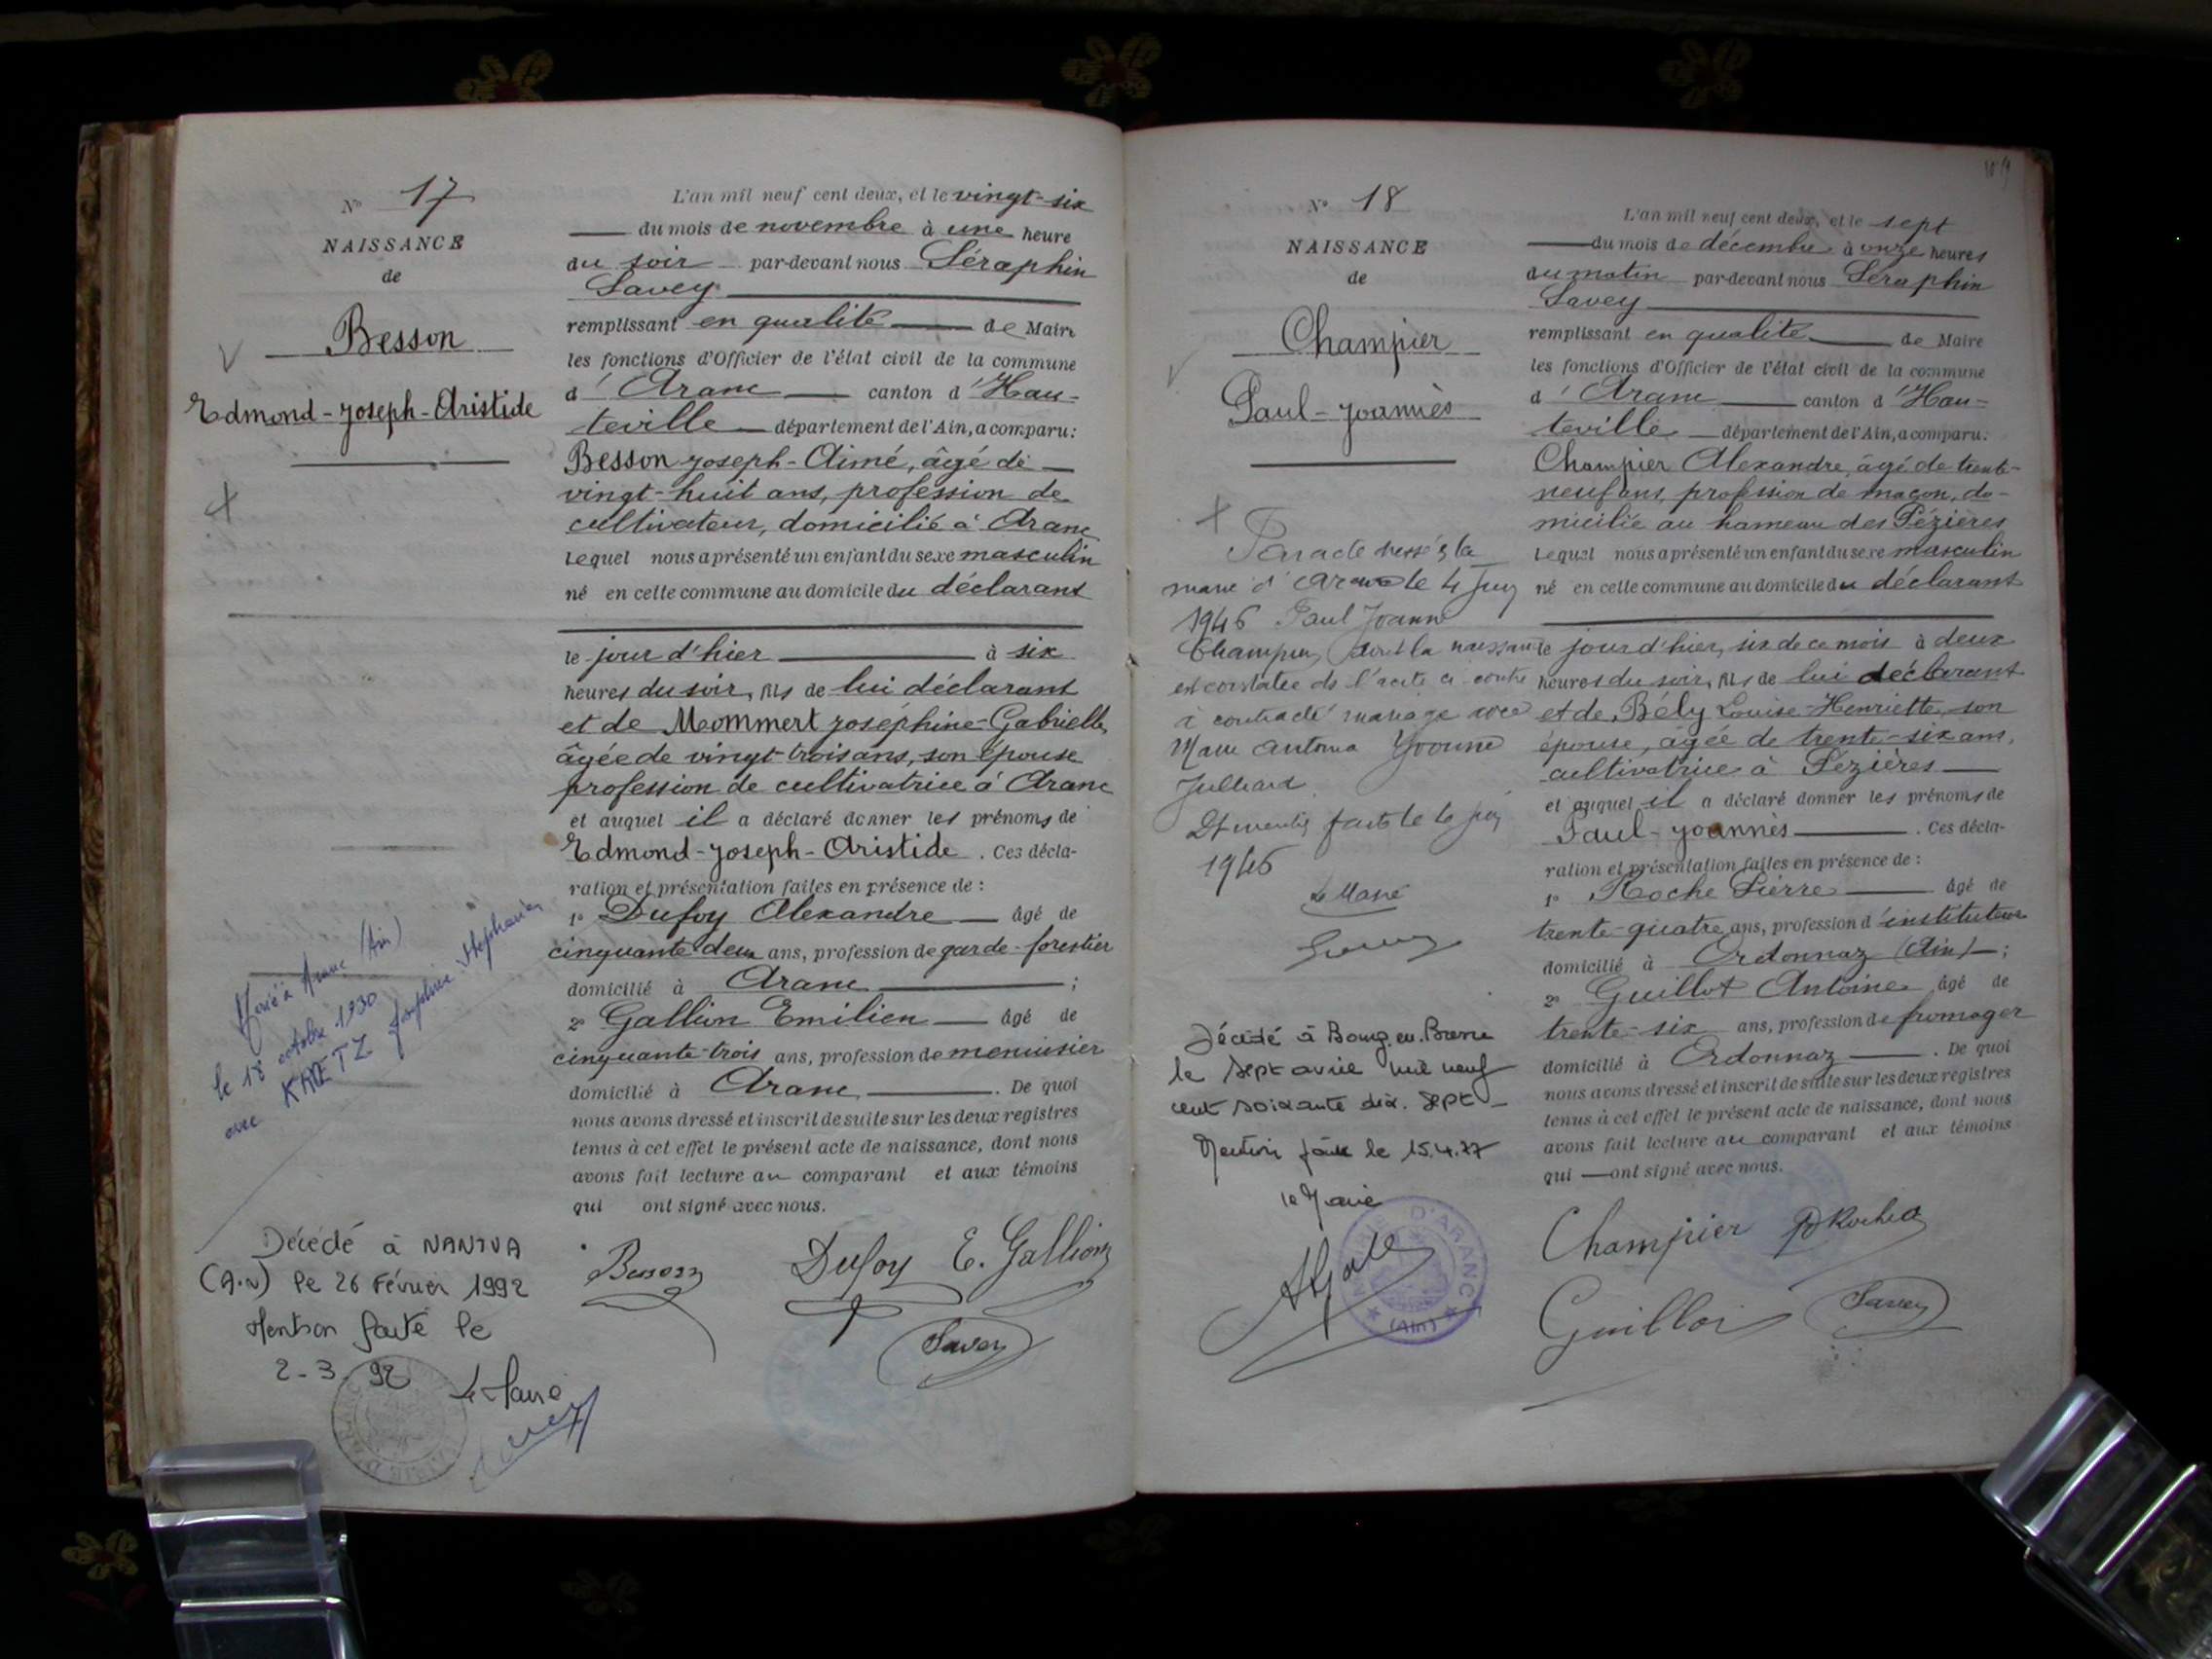 Nº 17
NAISSANCE
de
Besson
Edmond-Joseph-Aristide
Marié à Aranc (Ain)
le 18 octobre 1930
avec KAETZ Joséphine Stéphanie
Décédé à NANTUA
(Ain) le 26 Février 1992
Mention faite le
2-3-92
Le Maire
L'an mil neuf cent deux, et le vingt-six
du mois de novembre à une heure
du soir par-devant nous Séraphin
Savey
remplissant en qualité de Maire
les fonctions d'Officier de l'état civil de la commune
d'Aranc canton d'Hau-
teville département de l'Ain, a comparu:
Besson Joseph-Aimé, âgé de
vingt-huit ans, profession de
cultivateur, domicilié à Aranc
Lequel nous a présenté un enfant du sexe masculin
né en cette commune au domicile du déclarant
le jour d'hier à six
heures du soir, fils de lui déclarant
et de Mommert Joséphine-Gabrielle,
âgée de vingt-trois ans, son épouse
profession de cultivatrice à Aranc
et auquel il a déclaré donner les prénoms de
Edmond-Joseph-Aristide. Ces décla-
ration et présentation faites en présence de:
1º Dufoy Alexandre âgé de
cinquante-deux ans, profession de garde-forestier
domicilié à Aranc ;
2º Gallion Emilien âgé de
cinquante-trois ans, profession de menuisier
domicilié à Aranc. De quoi
nous avons dressé et inscrit de suite sur les deux registres
tenus à cet effet le présent acte de naissance, dont nous
avons fait lecture au comparant et aux témoins
qui ont signé avec nous.
Besson Dufoy E. Gallion
Savey
Nº 18
NAISSANCE
de
Champier
Paul-Joannès
Par acte dressé à la
mairie d'Aranc le 4 Juin
1946 Paul Joannès
Champier, dont la naissance
est constatée ds l'acte ci contre
a contracté mariage avec
Marie Antonia Yvonne
Julliard.
Dt mention faite le 6 Juin
1946
Le Maire
Décédé à Bourg.en.Bresse
le sept avril mil neuf
cent soixante dix. sept
Mention faite le 15.4.77
le Maire
D'ARANC
(Ain)
L'an mil neuf cent deux, et le sept
du mois de décembre à onze heures
du matin par-devant nous Séraphin
Savey
remplissant en qualité de Maire
les fonctions d'Officier de l'état civil de la commune
d'Aranc canton d'Hau-
teville département de l'Ain, a comparu:
Champier Alexandre, âgé de trente-
neuf ans, profession de maçon, do-
micilié au hameau des Pézières
Lequel nous a présenté un enfant du sexe masculin
né en cette commune au domicile du déclarant
le jour d'hier, six de ce mois à deux
heures du soir, fils de lui déclarant
et de Bély Louise-Henriette, son
épouse, âgée de trente-six ans,
cultivatrice à Pézières
et auquel il a déclaré donner les prénoms de
Paul-Joannès. Ces décla-
ration et présentation faites en présence de:
1º Roche Pierre âgé de
trente-quatre ans, profession d'instituteur
domicilié à Ordonnaz (Ain) ;
2º Guillot Antoine âgé de
trente-six ans, profession de fromager
domicilié à Ordonnaz. De quoi
nous avons dressé et inscrit de suite sur les deux registres
tenus à cet effet le présent acte de naissance, dont nous
avons fait lecture au comparant et aux témoins
qui ont signé avec nous.
Champier P Roche
Guillot Savey